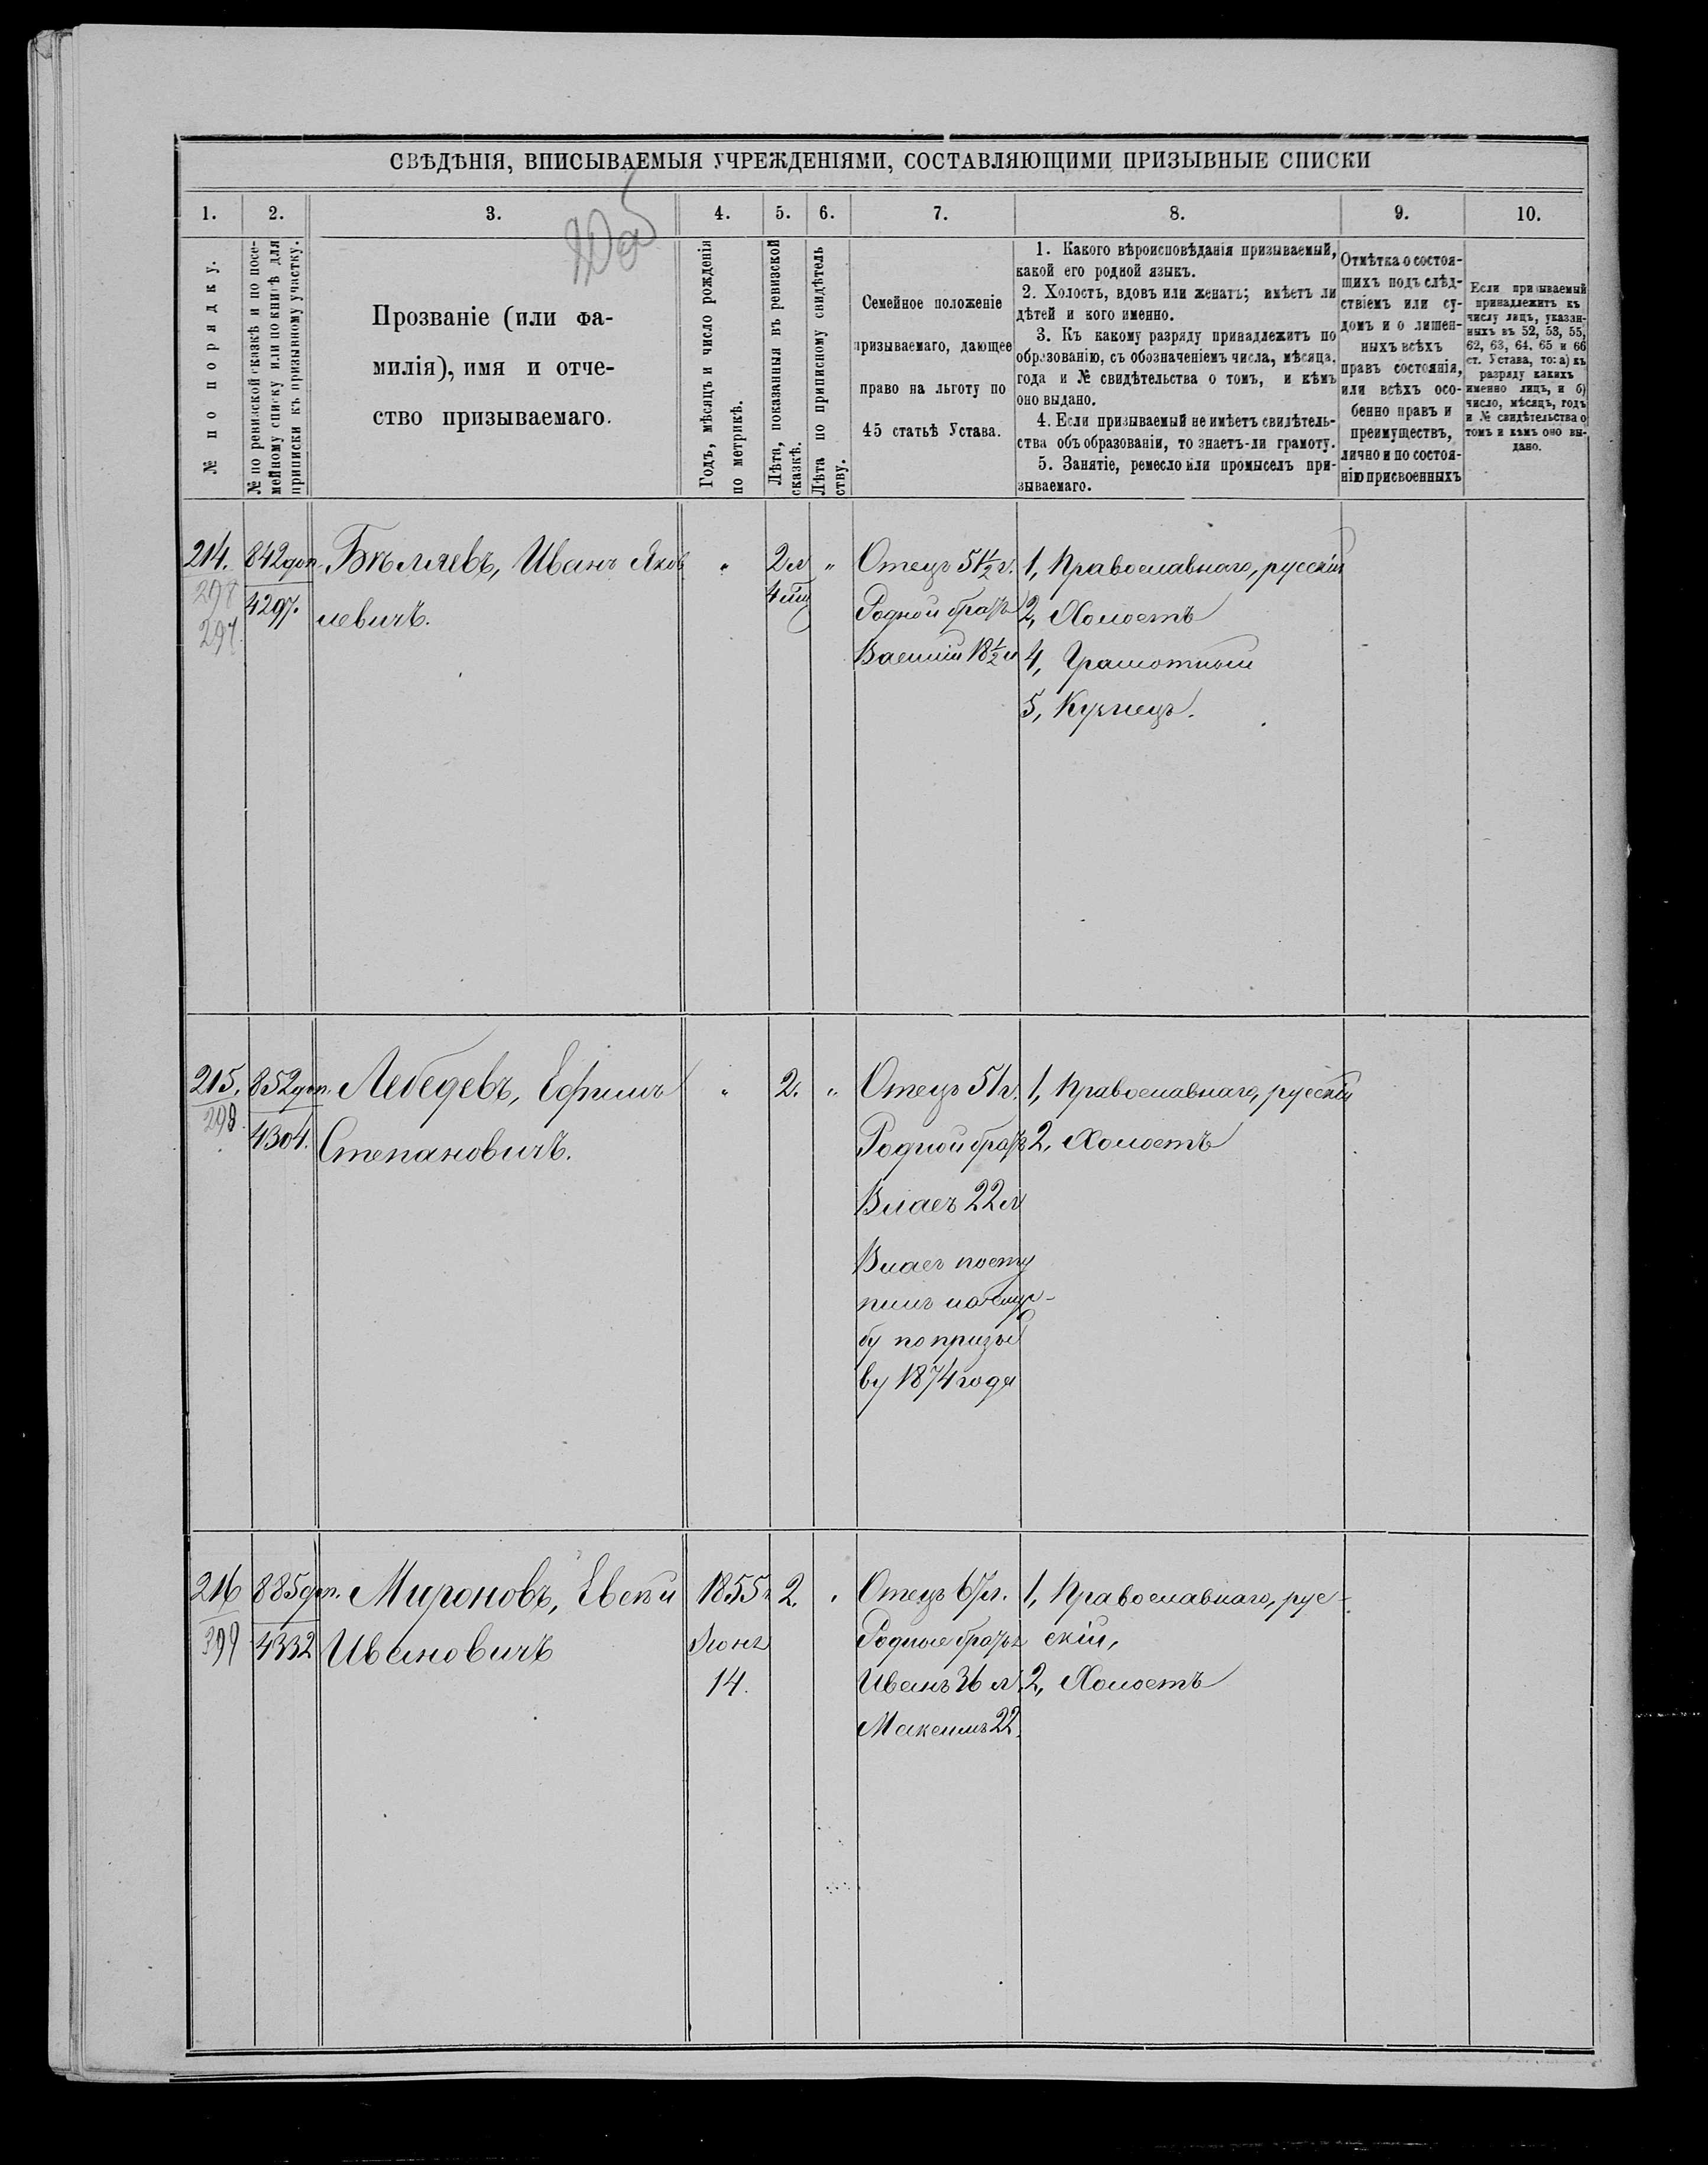 СВѢДѢНІЯ, ВПИСЫВАЕМЫЯ УЧРЕЖДЕНІЯМИ, СОСТАВЛЯЮЩИМИ ПРИЗЫВНЫЕ СПИСКИ
1. 2. 3. 4. 5. 6. 7. 8. 9. 10.
№ по порядку.
№ по ревизской сказкѣ и по посе-
мейному списку или по книгѣ для
приписки къ призывному участку.
Прозваніе (или фа-
милія), имя и отче-
ство призываемаго.
Годъ, мѣсяцъ и число рожденія
по метрикѣ.
Лѣта, показанныя въ ревизской
сказкѣ.
Лѣта по приписному свидѣтель
ству.
Семейное положеніе
призываемаго, дающее
право на льготу по
45 статьѣ Устава.
1. Какого вѣроисповѣданія призываемый,
какой его родной языкъ.
2. Холостъ, вдовъ или женатъ; имѣетъ ли
дѣтей и кого именно.
3. Къ какому разряду принадлежитъ по
образованію, съ обозначеніемъ числа, мѣсяца.
года и № свидѣтельства о томъ, и кѣмъ
оно выдано.
4. Если призываемый не имѣетъ свидѣтель-
ства объ образованіи, то знаетъ-ли грамоту.
5. Занятіе, ремесло или промыселъ при-
зываемаго.
Отмѣтка о состоя-
щихъ подъ слѣд-
ствіемъ или су-
домъ и о лишен-
ныхъ всѣхъ
правъ состоянія,
или всѣхъ осо-
бенно правъ и
преимуществъ,
лично и по состоя-
нію присвоенныхъ
Если призываемый
принадлежитъ къ
числу лицъ, указан-
ныхъ въ 52, 53, 55,
62, 63, 64. 65 и 66
ст. Устава, то: а) къ
разряду какихъ
именно лицъ, и б)
число, мѣсяцъ, годъ
и № свидѣтельства о
томъ и кѣмъ оно вы-
дано.
214. 842 доп. Бѣляевъ, Иванъ Яков " 2 л " Отецъ 51½ г. 1, Православнаго, русскій
298 4297. левичъ. 4 мѣс Родной братъ 2, Холостъ
297. Василій 18½ л 4, Грамотный
5, Кузнецъ.
215. 852 доп. Лебедевъ, Ефимъ " 2. " Отецъ 51 г. 1, Православнаго, русскій
298. 4304. Степановичъ. Родной братъ 2, Холостъ
Власъ 22 л
Власъ посту
пилъ на служ-
бу по призы
ву 1874 года
216 885 доп. Мироновъ, Евсѣй 1855 г 2. " Отецъ 67 л. 1, Православнаго, рус-
399 4332 Ивановичъ Іюнь Родные братья скій,
14. Иванъ 36 л. 2, Холостъ
Максимъ 22.